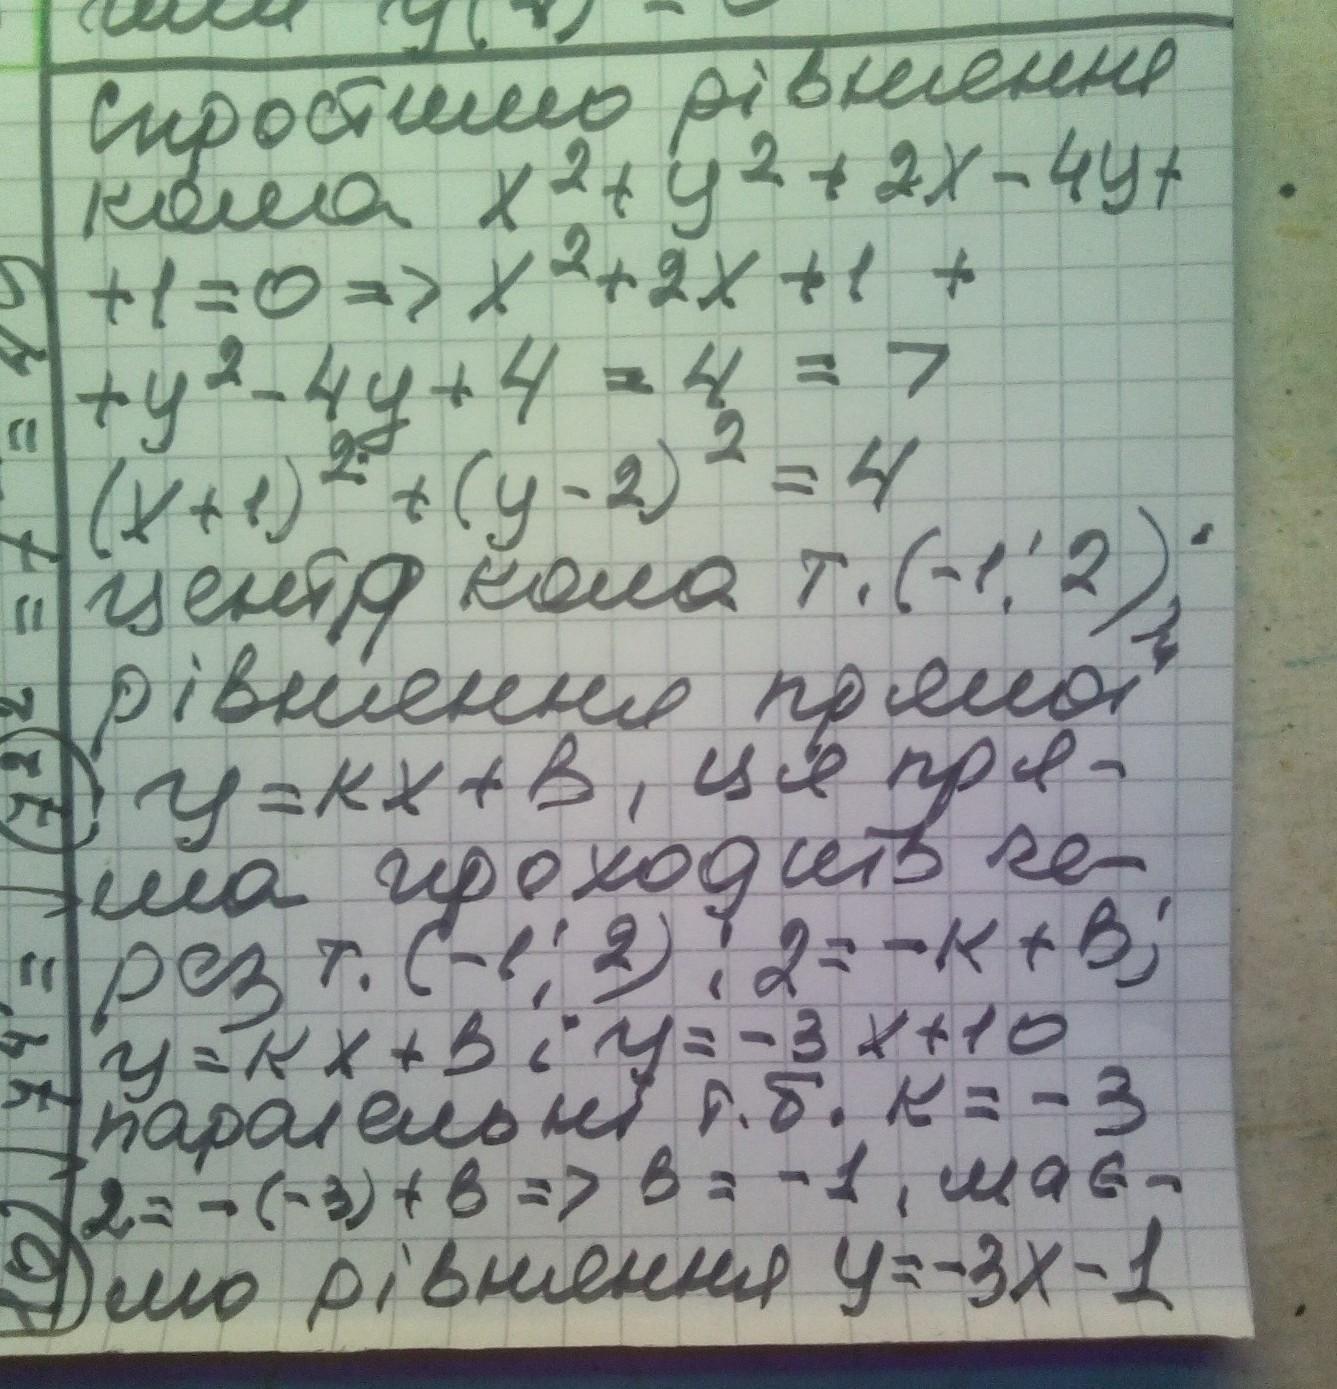 Спростимо рівняння
кола x² + y² + 2x - 4y +
+1 = 0 => x² + 2x + 1 +
+ y² - 4y + 4 = 4 =>
(x+1)² + (y-2)² = 4
центр кола т. (-1; 2);
рівняння прямої
y = кx + в, ця пря-
ма проходить че-
рез т. (-1; 2); 2 = -к + в;
y = кx + в і y = -3x + 10
паралельні т.б. к = -3
2 = -(-3) + в => в = -1, має-
мо рівняння y = -3x - 1